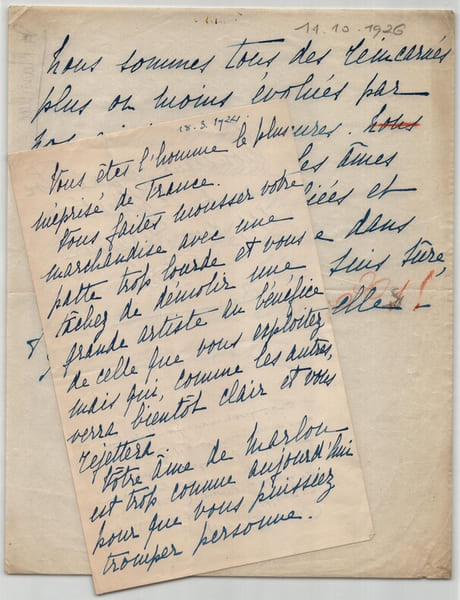 11.10.1926
Nous sommes tous des réincarnés
plus ou moins évolués par
nos
ures. nous
les âmes
iées et
e dans
suis sûre
elle!
18.3.1924
Vous êtes l'homme le plus
méprisé de France.
Vous faites mousser votre
marchandise avec une
patte trop lourde et vous
tâchez de démolir une
grande artiste au bénéfice
de celle que vous exploitez
mais qui, comme les autres,
verra bientôt clair et vous
rejettera.
Votre âme de Marlou
est trop connue aujourd'hui
pour que vous puissiez
tromper personne.